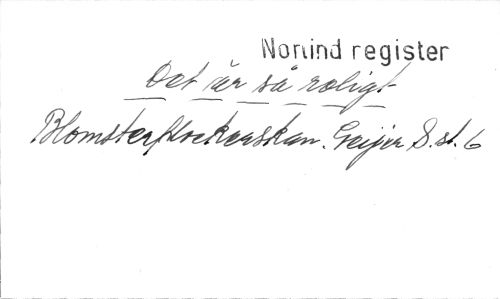 Norlind register
Det är så roligt
Blomsterplockerskan. Geijer S. st. 6